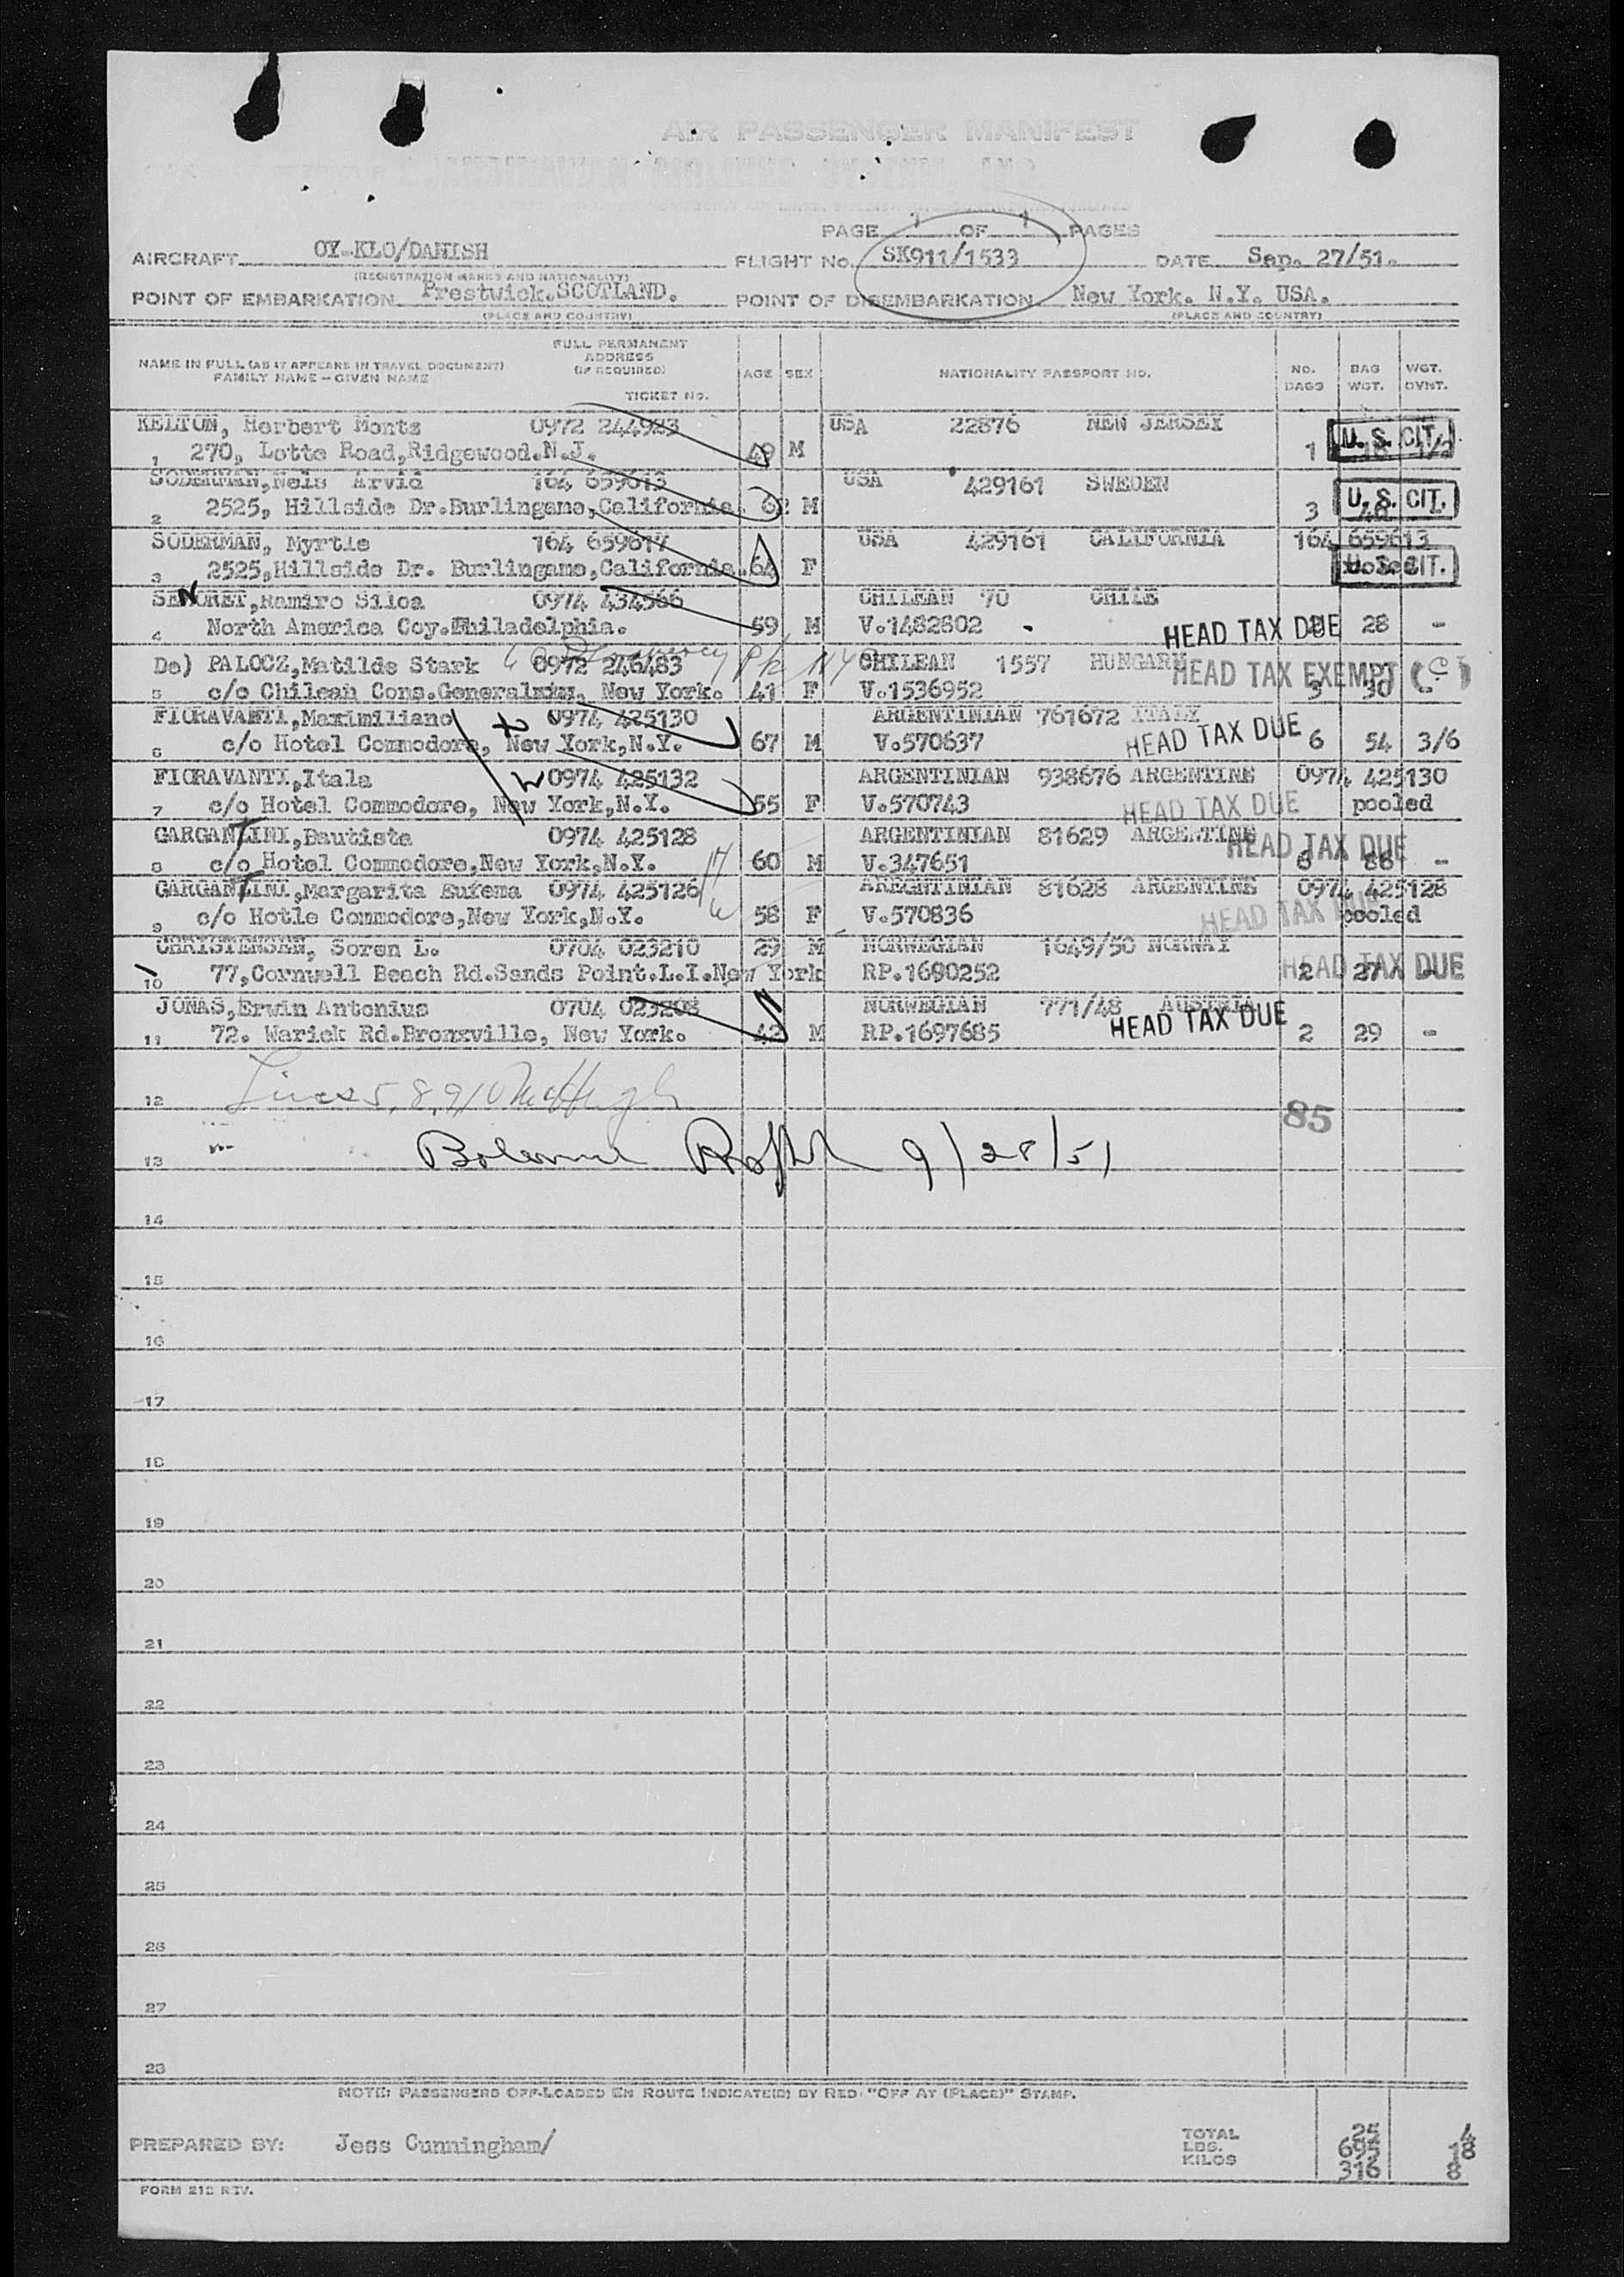 AIR PASSENGER MANIFEST
SCANDINAVIAN AIRLINES SYSTEM, INC.
PAGE 1 OF 1 PAGES
AIRCRAFT OY-KLO/DANISH FLIGHT No. SK911/1533 DATE Sep. 27/51.
(REGISTRATION MARKS AND NATIONALITY)
POINT OF EMBARKATION Prestwick.SCOTLAND. POINT OF DISEMBARKATION New York. N.Y. USA.
(PLACE AND COUNTRY) (PLACE AND COUNTRY)
NAME IN FULL (AS IT APPEARS IN TRAVEL DOCUMENT) FAMILY NAME - GIVEN NAME FULL PERMANENT ADDRESS (IF REQUIRED) TICKET No. AGE SEX NATIONALITY PASSPORT NO. NO. BAGS BAG WGT. WGT. OVNT.
KELTON, Herbert Monts 0972 244983 USA 22876 NEW JERSEY U. S. CIT.
1 270, Lotte Road,Ridgewood.N.J. 49 M 1
SODERMAN,Nels Arvid 164 659613 USA 429161 SWEDEN U. S. CIT.
2 2525, Hillside Dr.Burlingame,California. 62 M 3
SODERMAN, Myrtle 164 659617 USA 429161 CALIFORNIA 164 659613
3 2525,Hillside Dr. Burlingame,California. 64 F U. S. CIT.
SENORET,Ramiro Siloa 0974 434566 CHILEAN 70 CHILE
4 North America Coy.Philadelphia. 59 M V.1482802 HEAD TAX DUE 28 -
De) PALOCZ,Matilde Stark 0972 246483 CHILEAN 1557 HUNGARY HEAD TAX EXEMPT (C)
5 c/o Chilean Cons.General New York. 41 F V.1536952 3 30 -
FIORAVANTI,Maximiliano 0974 425130 ARGENTINIAN 761672 ITALY
6 c/o Hotel Commodore, New York,N.Y. 67 M V.570637 HEAD TAX DUE 6 54 3/6
FIORAVANTI,Itala 0974 425132 ARGENTINIAN 938676 ARGENTINE 0974 425130
7 c/o Hotel Commodore, New York,N.Y. 55 F V.570743 HEAD TAX DUE pooled
GARGANTINI,Bautista 0974 425128 ARGENTINIAN 81629 ARGENTINE HEAD TAX DUE
8 c/o Hotel Commodore,New York,N.Y. 60 M V.347651 6 86 -
GARGANTINI,Margarita Eufema 0974 425126 ARGENTINIAN 81628 ARGENTINE 0974 425128
9 c/o Hotle Commodore,New York,N.Y. 58 F V.570836 HEAD TAX DUE pooled
CHRISTENSEN, Soren L. 0704 023210 29 M NORWEGIAN 1649/50 NORWAY
10 77,Cornwell Beach Rd.Sands Point.L.I.New York RP.1690252 2 27 - HEAD TAX DUE
JONAS,Erwin Antonius 0704 023208 NORWEGIAN 771/48 AUSTRIA
11 72. Warick Rd.Bronxville, New York. 42 M RP.1697685 HEAD TAX DUE 2 29 -
12 Lines 5,8,9,10
85
13 9/28/51
14
15
16
17
18
19
20
21
22
23
24
25
26
27
28
NOTE: PASSENGERS OFF-LOADED EN ROUTE INDICATE(D) BY RED "OFF AT (PLACE)" STAMP.
PREPARED BY: Jess Cunningham/
TOTAL 25 4
LBS. 695 18
KILOS 316 8
FORM 212 REV.